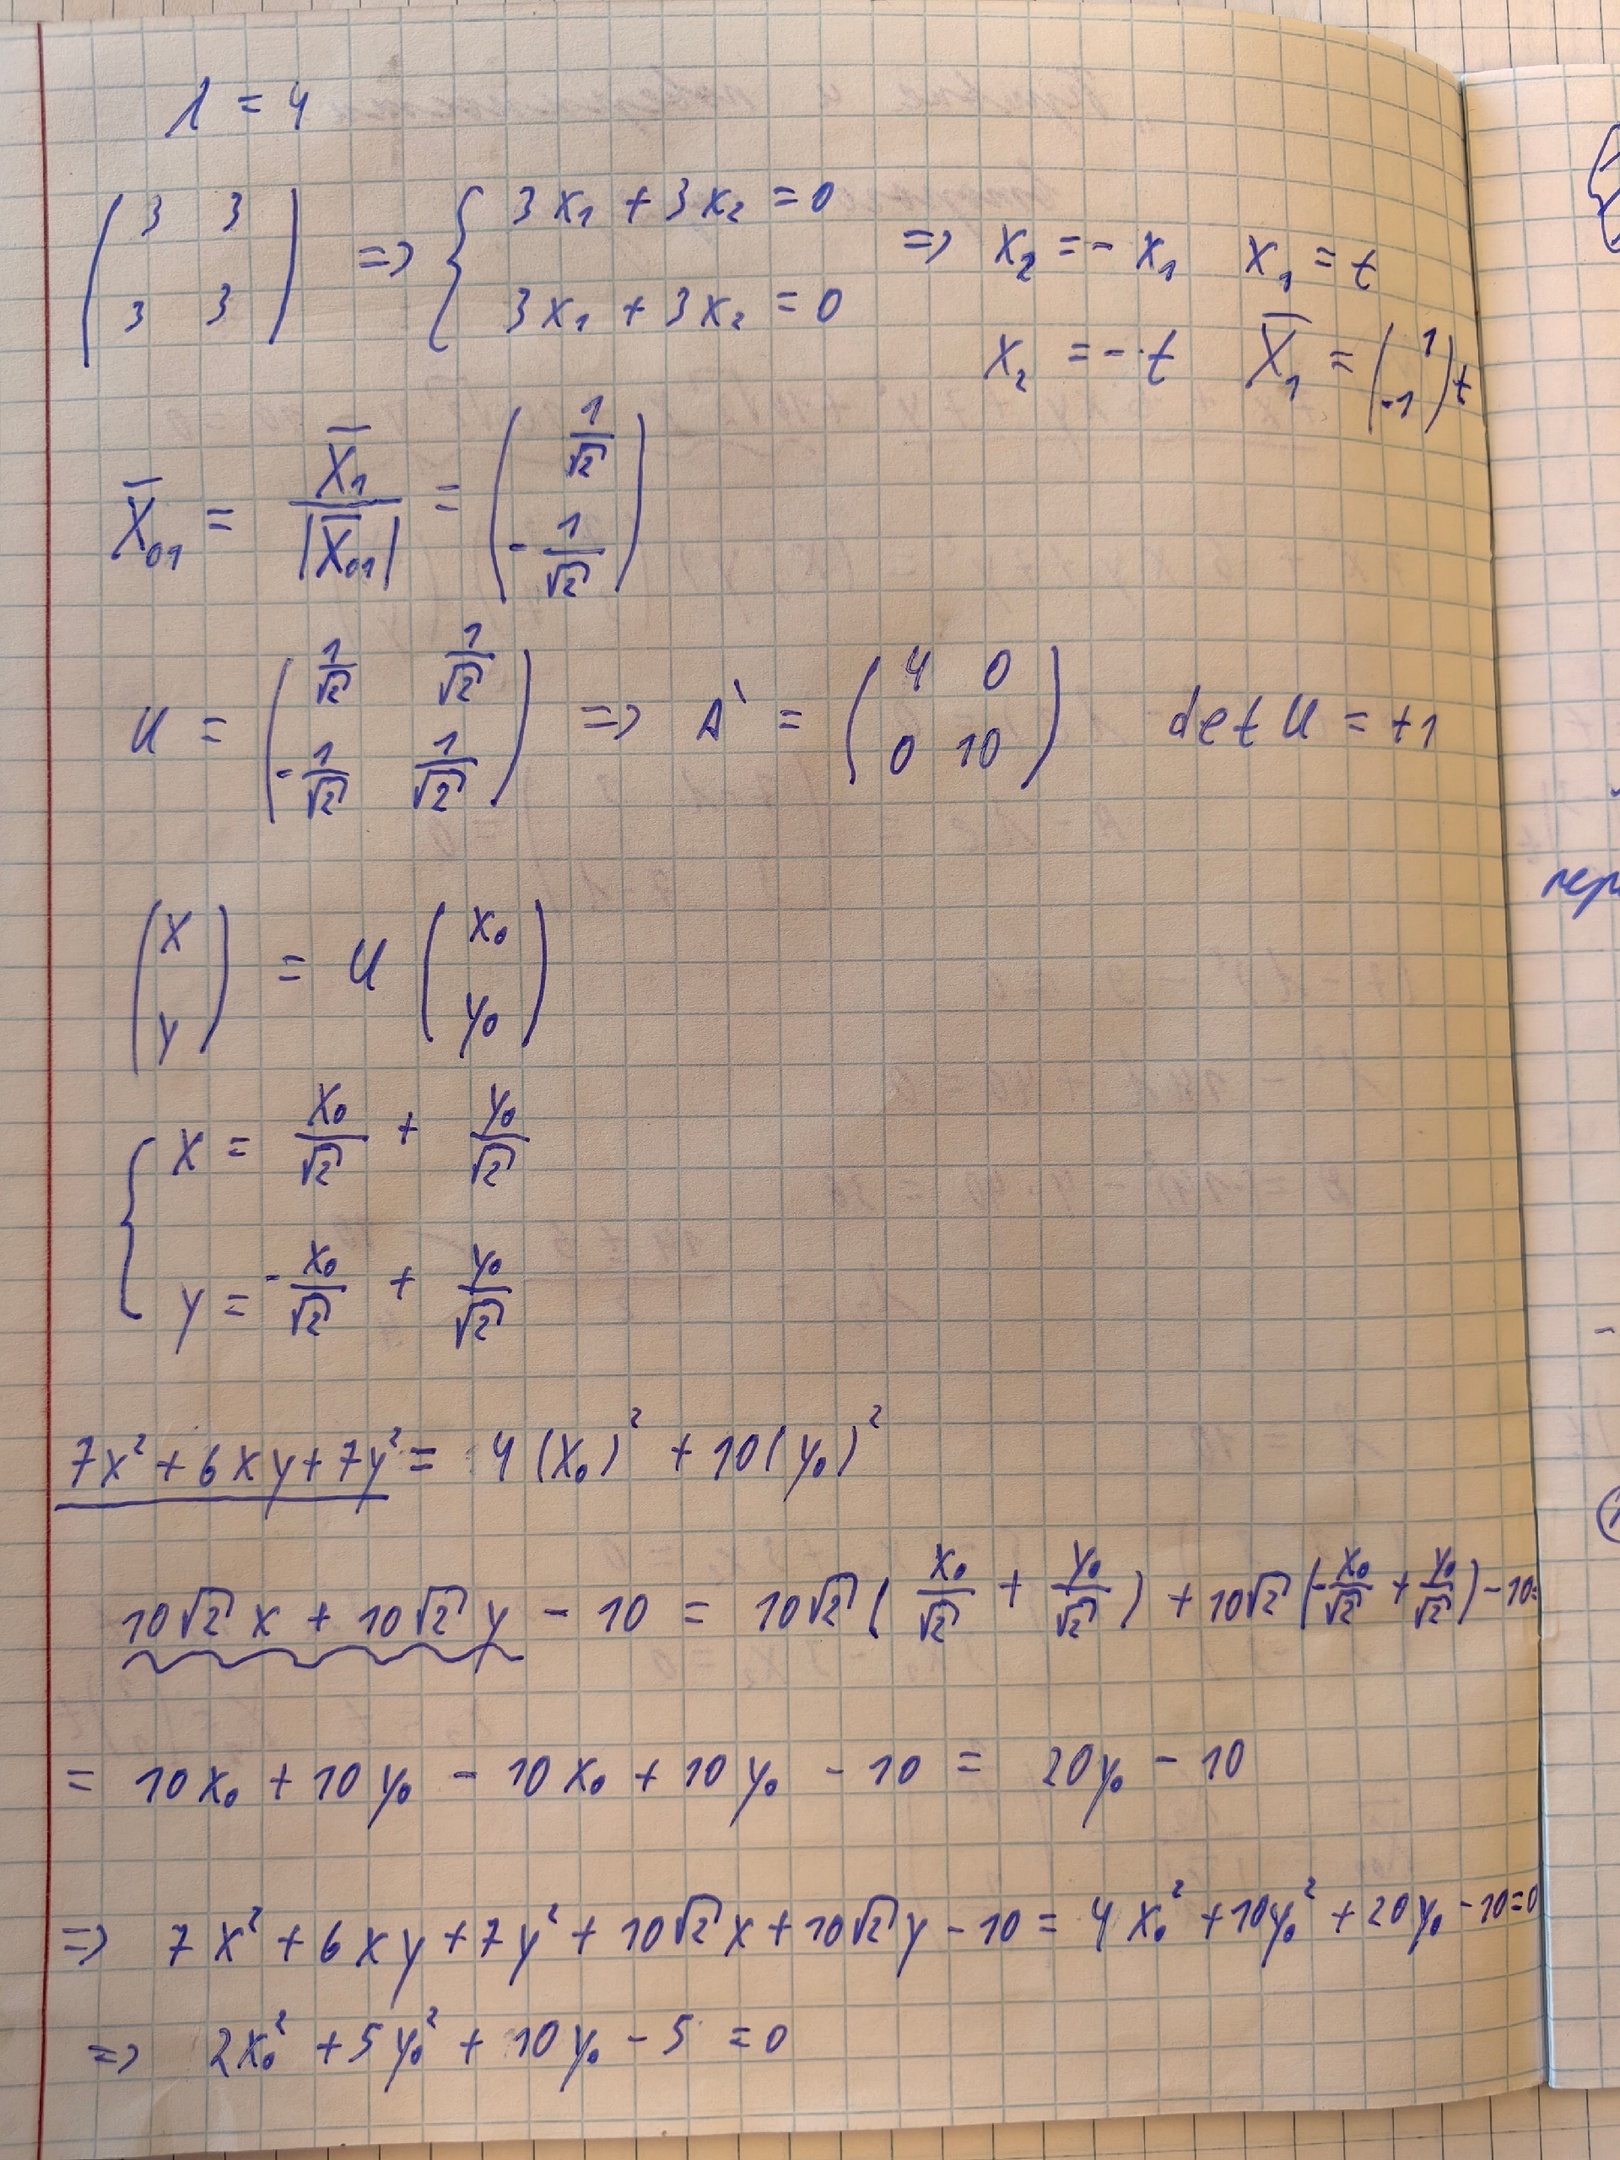 λ = 4
( 3 3 ; 3 3 ) => { 3x₁ + 3x₂ = 0 ; 3x₁ + 3x₂ = 0 => x₂ = - x₁ x₁ = t
x₂ = - t X̅₁ = ( 1 ; -1 ) t
X̅₀₁ = X̅₁ / |X̅₀₁| = ( 1/√2 ; - 1/√2 )
U = ( 1/√2 1/√2 ; - 1/√2 1/√2 ) => A` = ( 4 0 ; 0 10 ) det U = +1
( x ; y ) = U ( x₀ ; y₀ )
{ x = x₀/√2 + y₀/√2
y = - x₀/√2 + y₀/√2
7x² + 6xy + 7y² = 4(x₀)² + 10(y₀)²
10√2 x + 10√2 y - 10 = 10√2 ( x₀/√2 + y₀/√2 ) + 10√2 ( - x₀/√2 + y₀/√2 ) - 10 =
= 10x₀ + 10y₀ - 10x₀ + 10y₀ - 10 = 20y₀ - 10
=> 7x² + 6xy + 7y² + 10√2 x + 10√2 y - 10 = 4x₀² + 10y₀² + 20y₀ - 10 = 0
=> 2x₀² + 5y₀² + 10y₀ - 5 = 0